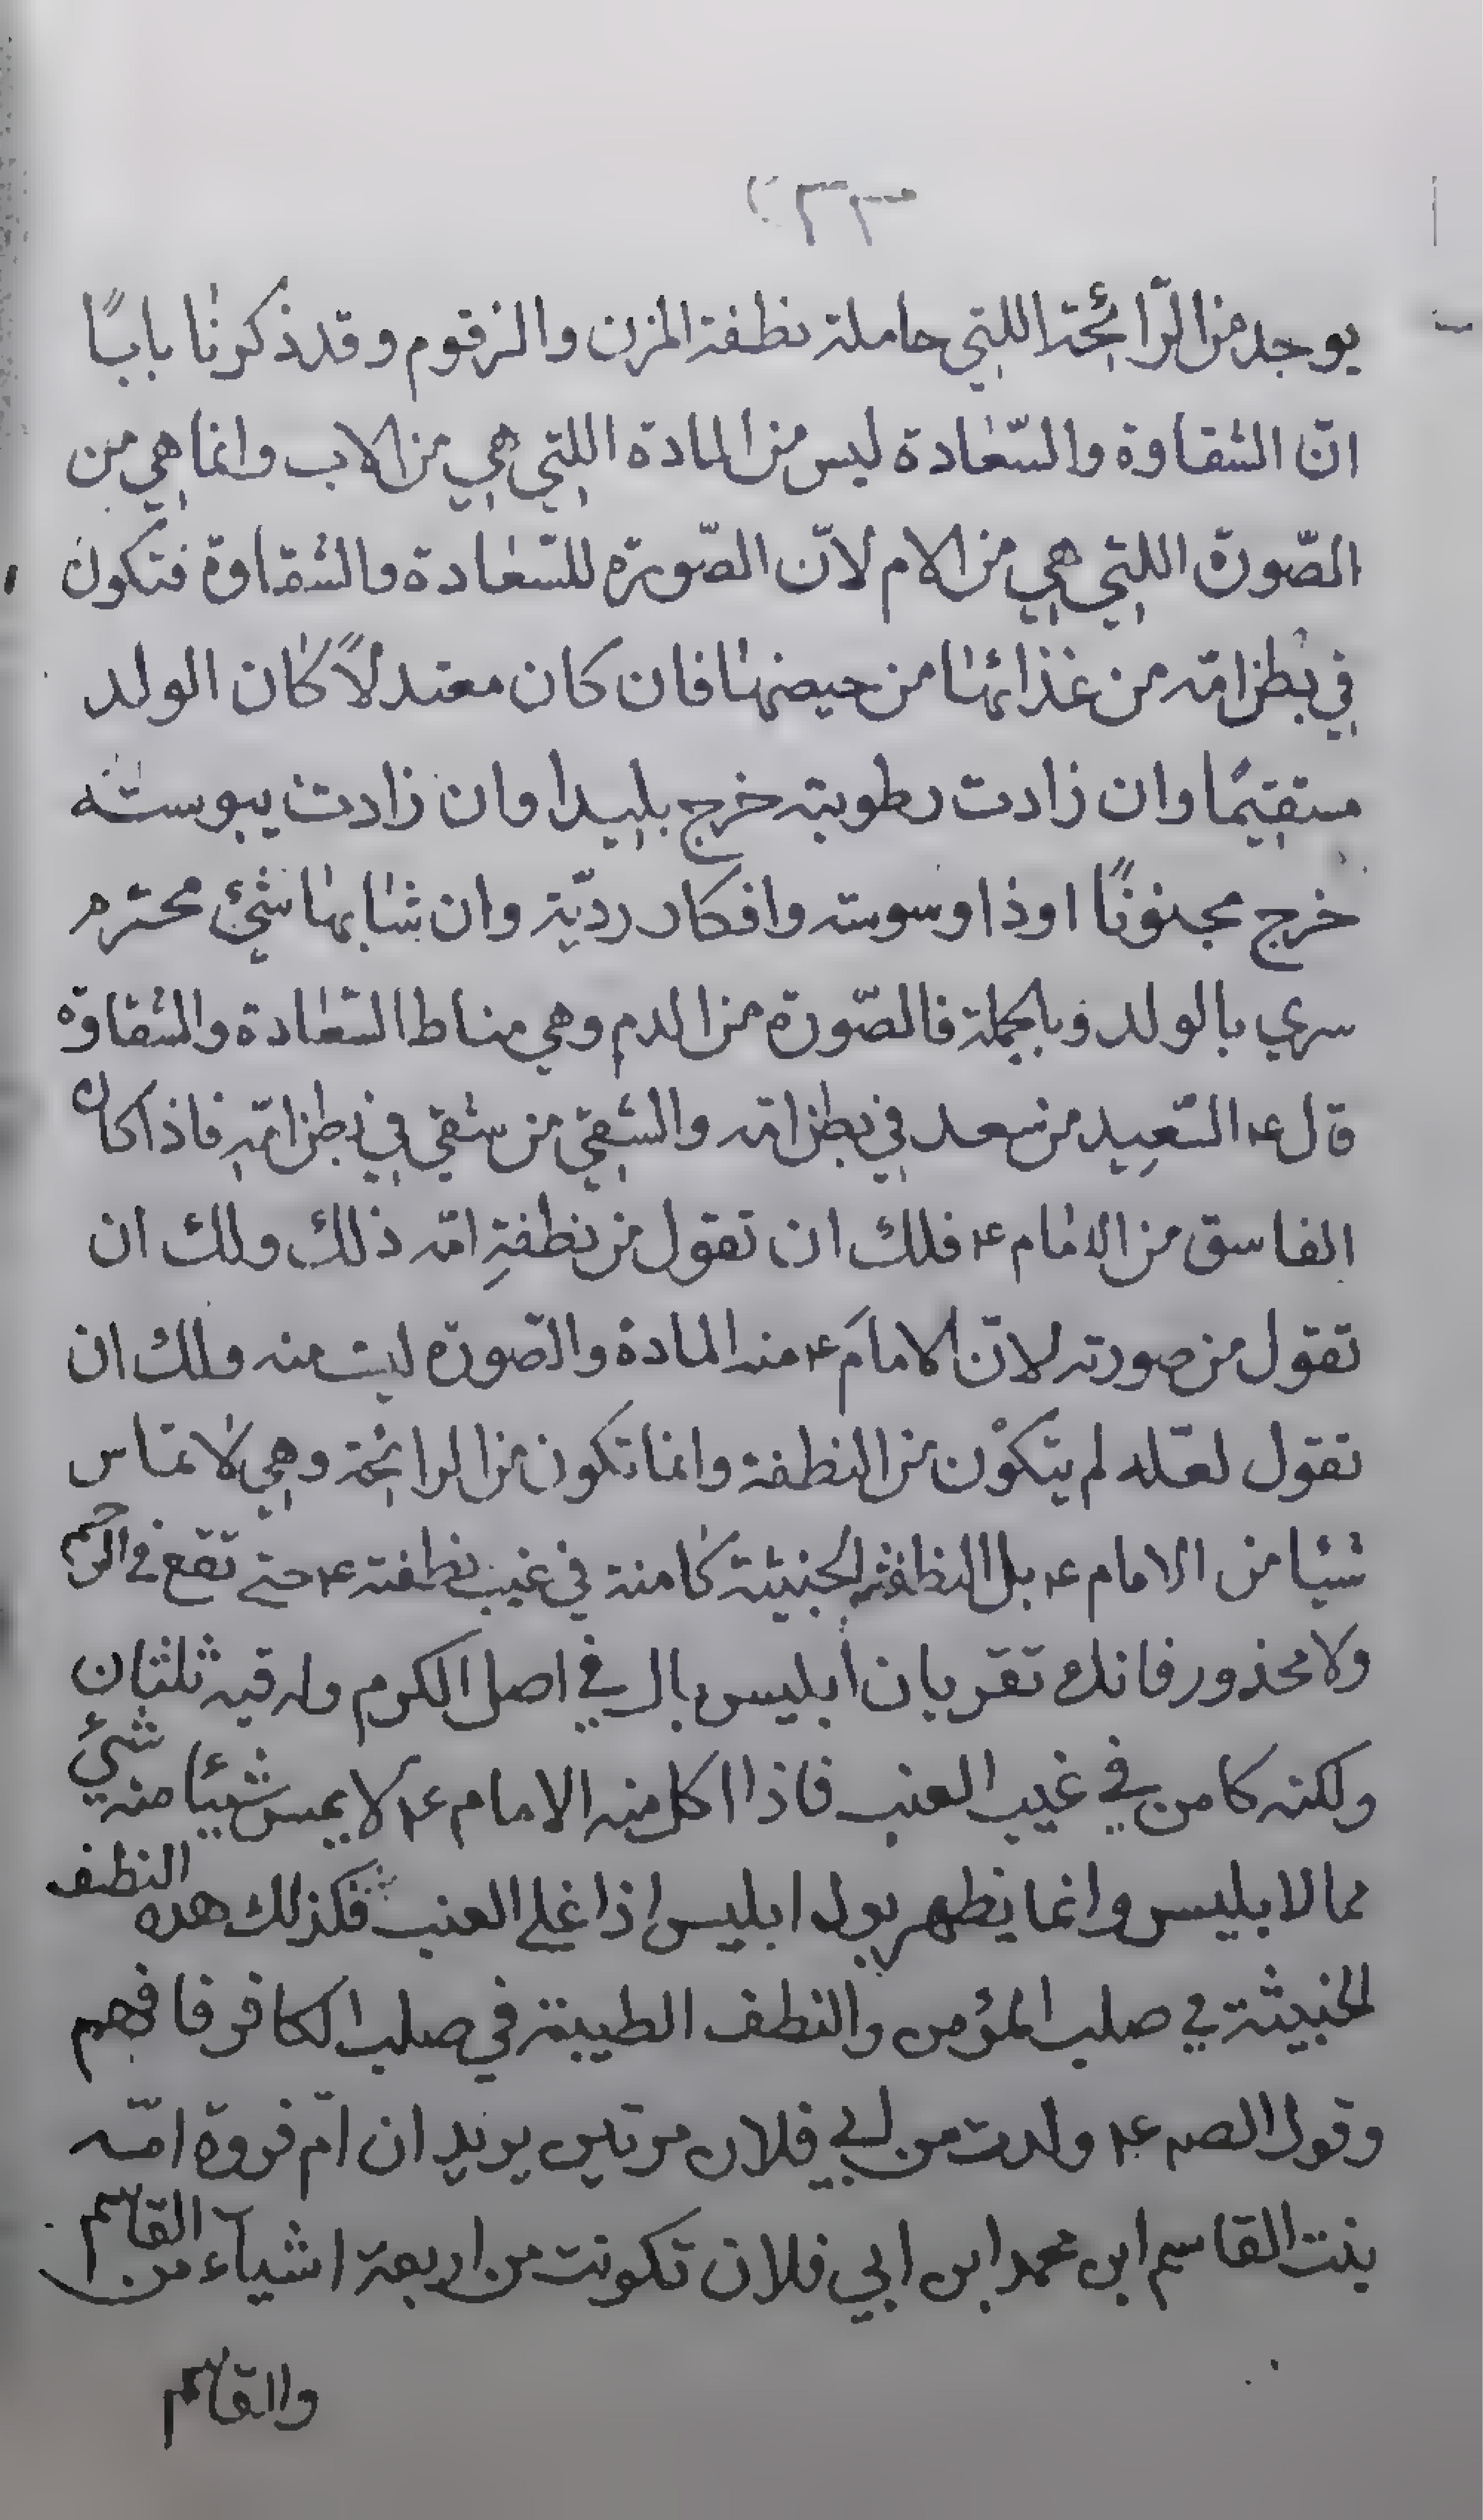 يوجد من الرّائحة اللتي حاملة نطفة المزن والزقوم وقد ذكرنا بابًا
انّ الشقاوة والسّعادة ليس من المادة اللتي هي من الاب وانما هي من
الصّورة اللتي هي من الام لانّ الصّورة للسّعادة والشقاوة فتكون
في بطن امّه من غذائها من حيضها فان كان معتدلاً كان الولد
مستقيمًا وان زادت رطوبته خرج بليدا وان زادت يبوسته
خرج مجنونًا اوذا وسوسته وافكار رديّة وان شابها شئ محترم
سري بالولد وبالجملة فالصّورة من الدم وهي مناط السّعادة والشقاوة
قال ع السّعيد من سعد في بطن امّه والشقي من شقي في بطن امّهِ فاذا كان
الفاسق من الامام ع فلك ان تقول من نطفةِ امّه ذلك ولك ان
تقول من صورته لانّ الامامَ ع منه المادة والصّورة ليست منه ولك ان
تقول لعّله لم يتكوّن من النطفة وانما تكون من الرائحة وهي لا تماس
شيئا من الامام ع بل النطفة الخبيثة كامنة في غيب نطفته ع حتى تقع في الرحم
ولا محذور فانك تقر بان ابليس بال في اصل الكرم وله فيه ثلثان
ولكنه كامن في غيب العنب فاذا اكل منه الامام ع لا يمس شيئا منه شئ
مما لابليس وانما يظهر بول ابليس اذا غلى العنب فكذلك هذه النطف
الخبيثة في صلب المؤمن والنطف الطيبة في صلب الكافر فافهم
وقول الصه ع ولدت من ابي فلان مرتين يريد ان امّ فروة امّه
بنت القاسم ابن محمد ابن ابي فلان تكونت من اربعة اشيآء من القاسم
والقاسم